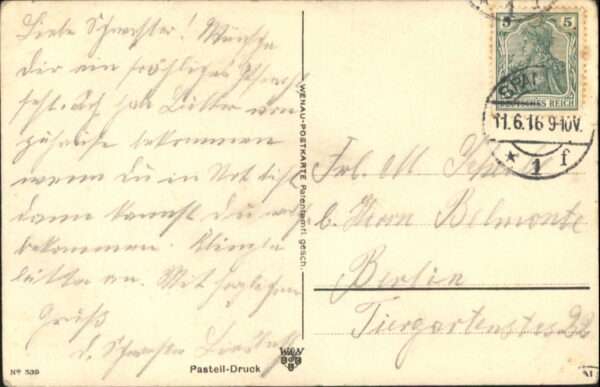 Liebe Schwester! Wünsche
Dir ein fröhliches Pfingst
fest. Ich habe Butter von
zu Hause bekommen
wenn du in Not bist
dann kannst Du welche
bekommen. Klingle
bitte an. Mit herzlichem
Gruß
d. Schwester
WENAU-POSTKARTE Patentamtl. gesch.
5 5
DEUTSCHES REICH
SPAN
11.6.16 9-10V.
* 1 f
Frl. M.
b. Herrn Belmonte
Berlin
Tiergartenstr.
No 539
Pastell-Druck